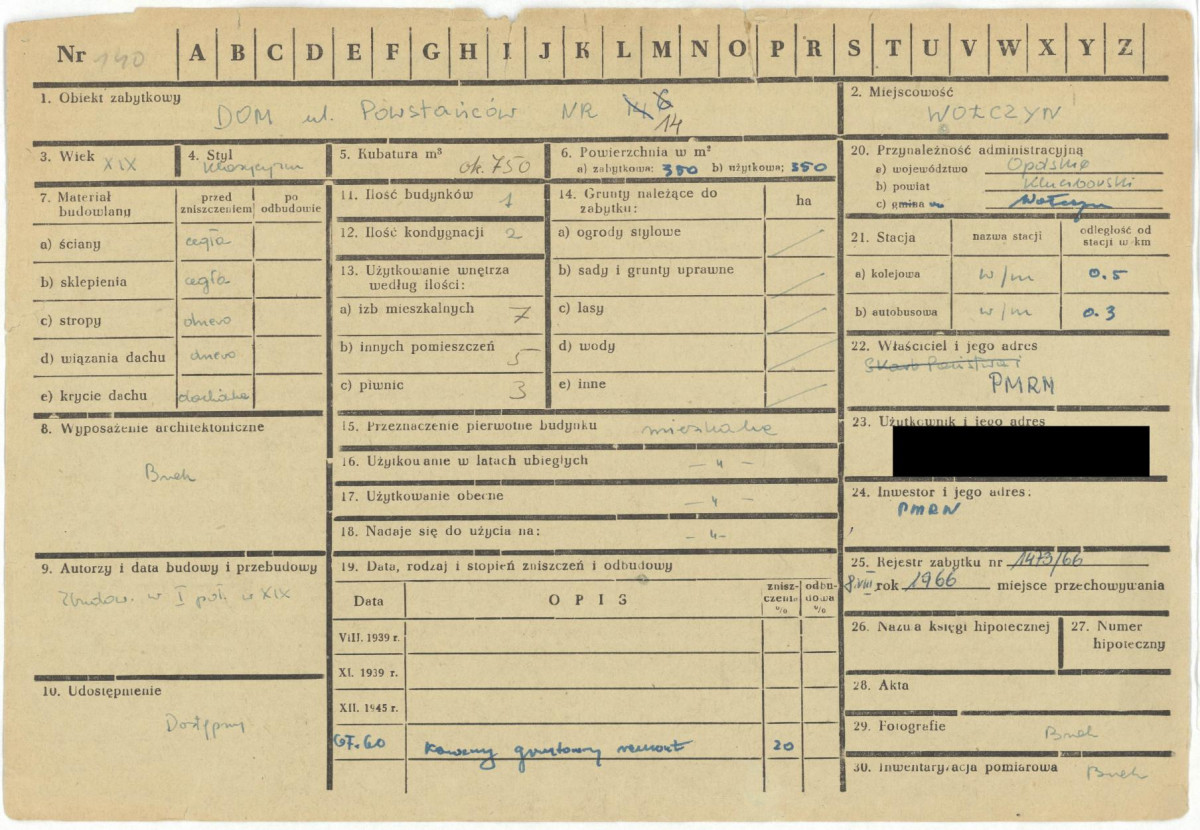 Nr 140 A B C D E F G H I J K L M N O P R S T U V W X Y Z
1. Obiekt zabytkowy
DOM ul. Powstańców NR 6
14
2. Miejscowość
WOŁCZYN
3. Wiek
XIX
4. Styl
klasycyzm
5. Kubatura m³
ok. 750
6. Powierzchnia w m²
a) zabytkowa: 350 b) użytkowa: 350
20. Przynależność administracyjną
a) województwo Opolskie
b) powiat Kluczborski
c) gmina m Wołczyn
7. Materiał budowlany
przed zniszczeniem
po odbudowie
a) ściany cegła
b) sklepienia cegła
c) stropy drewo
d) wiązania dachu drewo
e) krycie dachu dachówka
11. Ilość budynków 1
12. Ilość kondygnacji 2
13. Użytkowanie wnętrza według ilości:
a) izb mieszkalnych 7
b) innych pomieszczeń 5
c) piwnic 3
14. Grunty należące do zabytku:
ha
a) ogrody stylowe
b) sady i grunty uprawne
c) lasy
d) wody
e) inne
21. Stacja
nazwa stacji
odległość od stacji w km
a) kolejowa w/m 0.5
b) autobusowa w/m 0.3
22. Właściciel i jego adres
Skarb Państwa
PMRN
8. Wyposażenie architektoniczne
Brak
15. Przeznaczenie pierwotne budynku mieszkalne
16. Użytkowanie w latach ubiegłych — „ —
17. Użytkowanie obecne — „ —
18. Nadaje się do użycia na: — „ —
23. Użytkownik i jego adres
24. Inwestor i jego adres:
PMRN
9. Autorzy i data budowy i przebudowy
Zbudow. w I poł. w XIX
19. Data, rodzaj i stopień zniszczeń i odbudowy
Data
OPIS
zniszczenia %
odbudowa %
VIII. 1939 r.
XI. 1939 r.
XII. 1945 r.
gruntowny remont 20
25. Rejestr zabytku nr 1473/66
8.VIII rok 1966 miejsce przechowywania
26. Nazwa księgi hipotecznej
27. Numer hipoteczny
10. Udostępnienie
Dostępny
28. Akta
29. Fotografie Brak
30. Inwentaryzacja pomiarowa Brak